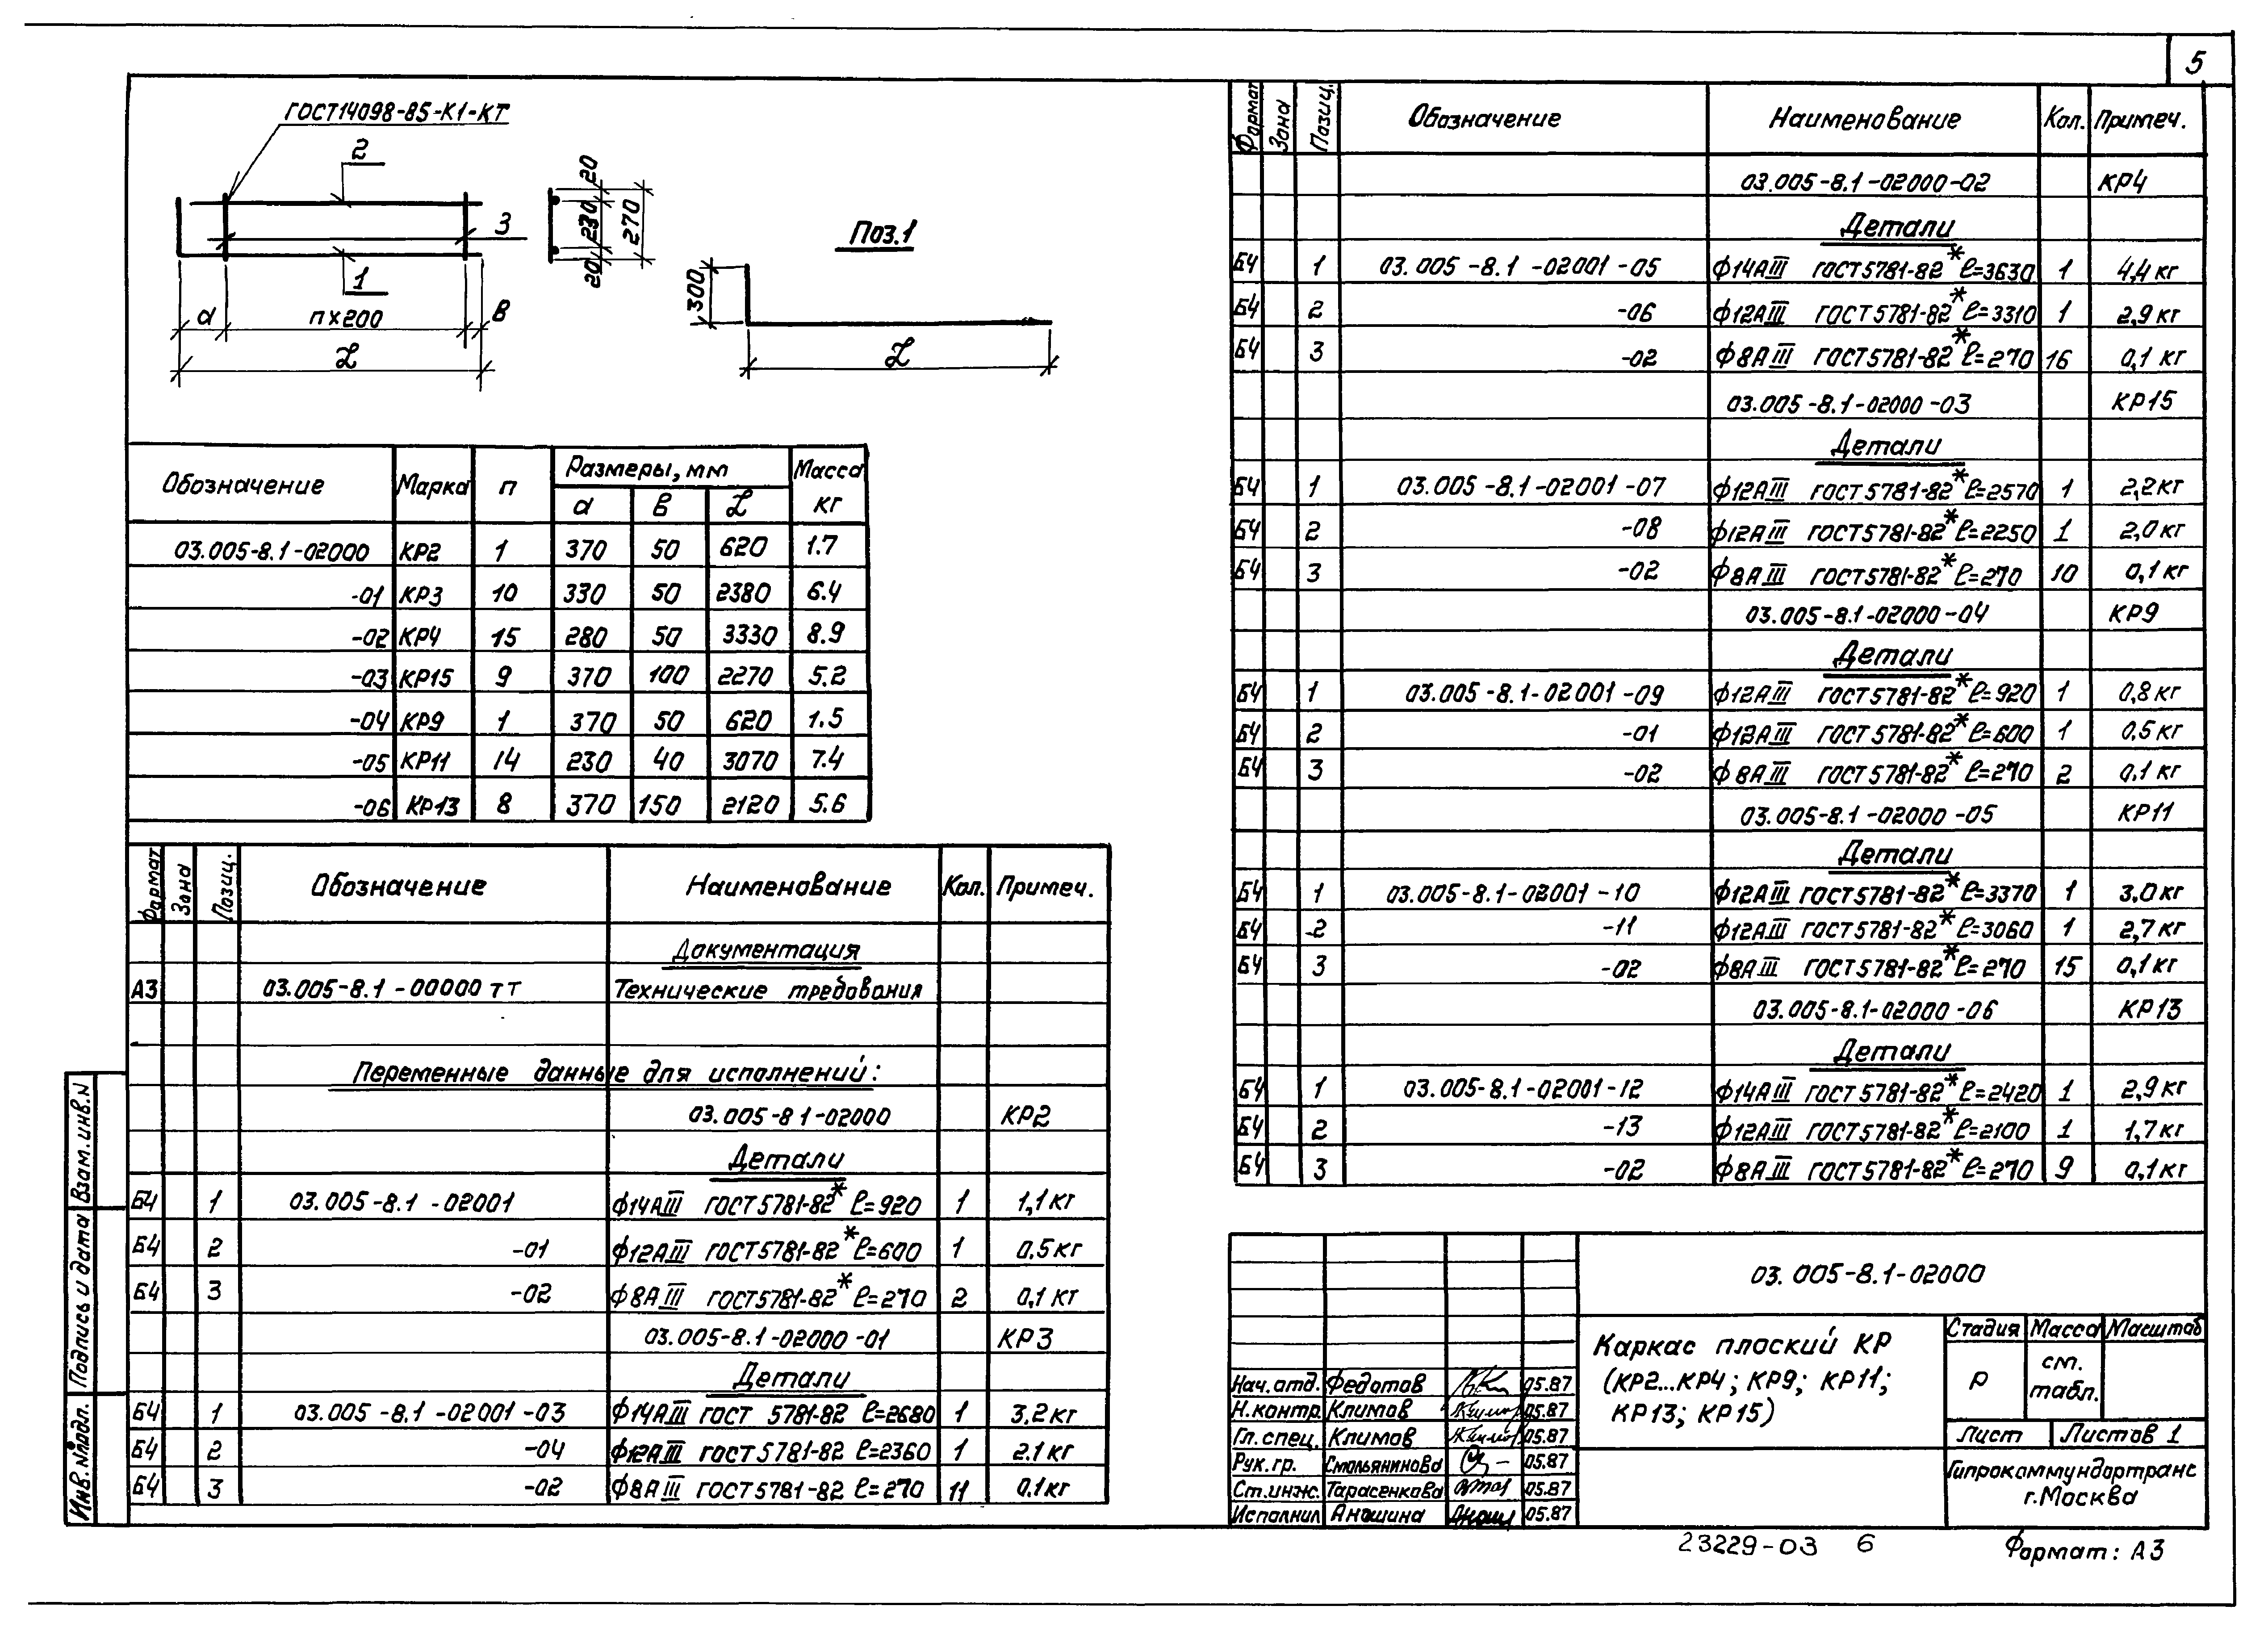 5
ГОСТ14098-85-К1-КТ
2
3
1
а
п×200
в
L
20
230
20
270
Поз.1
300
L
Обозначение Марка п Размеры, мм Масса кг
а в L
03.005-8.1-02000 КР2 1 370 50 620 1.7
-01 КР3 10 330 50 2380 6.4
-02 КР4 15 280 50 3330 8.9
-03 КР15 9 370 100 2270 5.2
-04 КР9 1 370 50 620 1.5
-05 КР11 14 230 40 3070 7.4
-06 КР13 8 370 150 2120 5.6
Формат Зона Позиц. Обозначение Наименование Кол. Примеч.
Документация
А3 03.005-8.1-00000 ТТ Технические требования
Переменные данные для исполнений:
03.005-8 1-02000 КР2
Детали
Б4 1 03.005-8.1-02001 ф14АIII ГОСТ5781-82* ℓ=920 1 1,1 кг
Б4 2 -01 ф12АIII ГОСТ5781-82* ℓ=600 1 0,5 кг
Б4 3 -02 ф8АIII ГОСТ5781-82* ℓ=270 2 0,1 кг
03.005-8.1-02000-01 КР3
Детали
Б4 1 03.005-8.1-02001-03 ф14АIII ГОСТ 5781-82 ℓ=2680 1 3,2 кг
Б4 2 -04 ф12АIII ГОСТ5781-82 ℓ=2360 1 2.1 кг
Б4 3 -02 ф8АIII ГОСТ5781-82 ℓ=270 11 0,1 кг
Формат Зона Позиц. Обозначение Наименование Кол. Примеч.
03.005-8.1-02000-02 КР4
Детали
Б4 1 03.005-8.1-02001-05 ф14АIII ГОСТ5781-82* ℓ=3630 1 4,4 кг
Б4 2 -06 ф12АIII ГОСТ5781-82* ℓ=3310 1 2,9 кг
Б4 3 -02 ф8АIII ГОСТ5781-82* ℓ=270 16 0,1 кг
03.005-8.1-02000-03 КР15
Детали
Б4 1 03.005-8.1-02001-07 ф12АIII ГОСТ5781-82* ℓ=2570 1 2,2 кг
Б4 2 -08 ф12АIII ГОСТ5781-82* ℓ=2250 1 2,0 кг
Б4 3 -02 ф8АIII ГОСТ5781-82* ℓ=270 10 0,1 кг
03.005-8.1-02000-04 КР9
Детали
Б4 1 03.005-8.1-02001-09 ф12АIII ГОСТ5781-82* ℓ=920 1 0,8 кг
Б4 2 -01 ф12АIII ГОСТ5781-82* ℓ=600 1 0,5 кг
Б4 3 -02 ф8АIII ГОСТ5781-82* ℓ=270 2 0,1 кг
03.005-8.1-02000-05 КР11
Детали
Б4 1 03.005-8.1-02001-10 ф12АIII ГОСТ5781-82* ℓ=3370 1 3,0 кг
Б4 2 -11 ф12АIII ГОСТ5781-82* ℓ=3060 1 2,7 кг
Б4 3 -02 ф8АIII ГОСТ5781-82* ℓ=270 15 0,1 кг
03.005-8.1-02000-06 КР13
Детали
Б4 1 03.005-8.1-02001-12 ф14АIII ГОСТ5781-82* ℓ=2420 1 2,9 кг
Б4 2 -13 ф12АIII ГОСТ5781-82* ℓ=2100 1 1,7 кг
Б4 3 -02 ф8АIII ГОСТ5781-82* ℓ=270 9 0,1 кг
03.005-8.1-02000
Каркас плоский КР
(КР2...КР4; КР9; КР11;
КР13; КР15)
Стадия Масса Масштаб
Р см. табл.
Лист Листов 1
Гипрокоммундортранс
г.Москва
Нач.отд. Федотов 05.87
Н.контр. Климов 05.87
Гл.спец. Климов 05.87
Рук.гр. Смольянинова 05.87
Ст.инж. Тарасенкова 05.87
Исполнил Аношина 05.87
Взам.инв.N
Подпись и дата
Инв.Nподл.
23229-03 6
Формат: А3